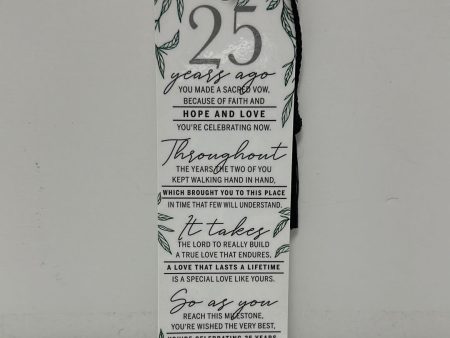 25
years ago
YOU MADE A SACRED VOW,
BECAUSE OF FAITH AND
HOPE AND LOVE
YOU'RE CELEBRATING NOW.
Throughout
THE YEARS THE TWO OF YOU
KEPT WALKING HAND IN HAND,
WHICH BROUGHT YOU TO THIS PLACE
IN TIME THAT FEW WILL UNDERSTAND.
It takes
THE LORD TO REALLY BUILD
A TRUE LOVE THAT ENDURES.
A LOVE THAT LASTS A LIFETIME
IS A SPECIAL LOVE LIKE YOURS.
So as you
REACH THIS MILESTONE,
YOU'RE WISHED THE VERY BEST,
YOU'RE CELEBRATING 25 YEARS